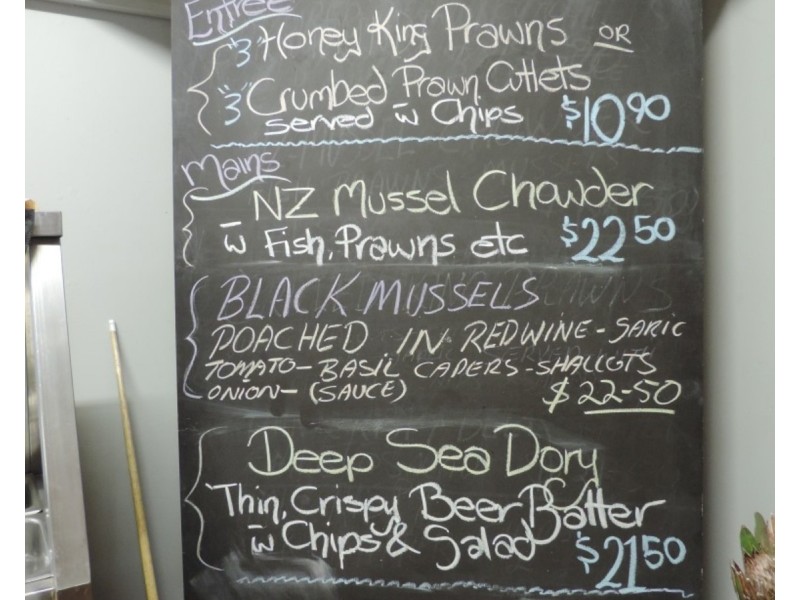 Entrée
3 Honey King Prawns OR
3 Crumbed Prawn Cutlets
served w̄ Chips $10.90
Mains
NZ Mussel Chowder
w̄ Fish, Prawns etc $22.50
BLACK MUSSELS
POACHED IN REDWINE - GARIC
TOMATO - BASIL CAPERS - SHALLOTS
ONION - (SAUCE) $22-50
Deep Sea Dory
Thin, Crispy Beer Batter
w̄ Chips & Salad $21.50